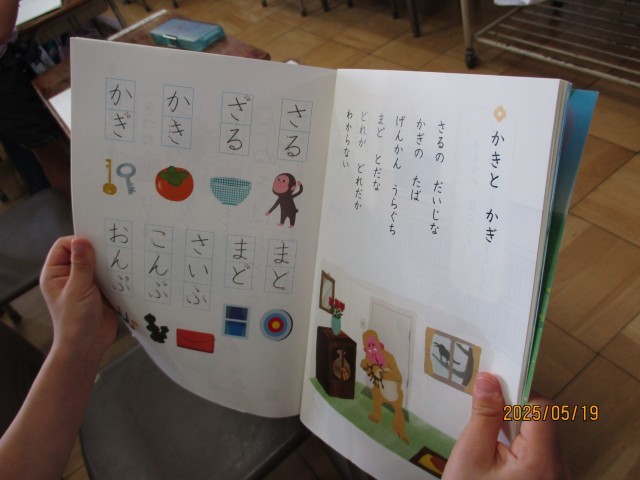 かきと かぎ
さるの だいじな
かぎの たば
げんかん うらぐち
まど とだな
どれが どれだか
わからない
さる
ざる
かき
かぎ
まと
まど
さいふ
こんぶ
おんぷ
2025/05/19